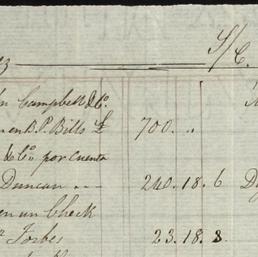 S/C.
n Campbell & Co.
en D. P. Bills £ 700. "
& Co. por cuenta
Duncan -- 240. 18. 6
en un Check
Forbes 23. 18. 8